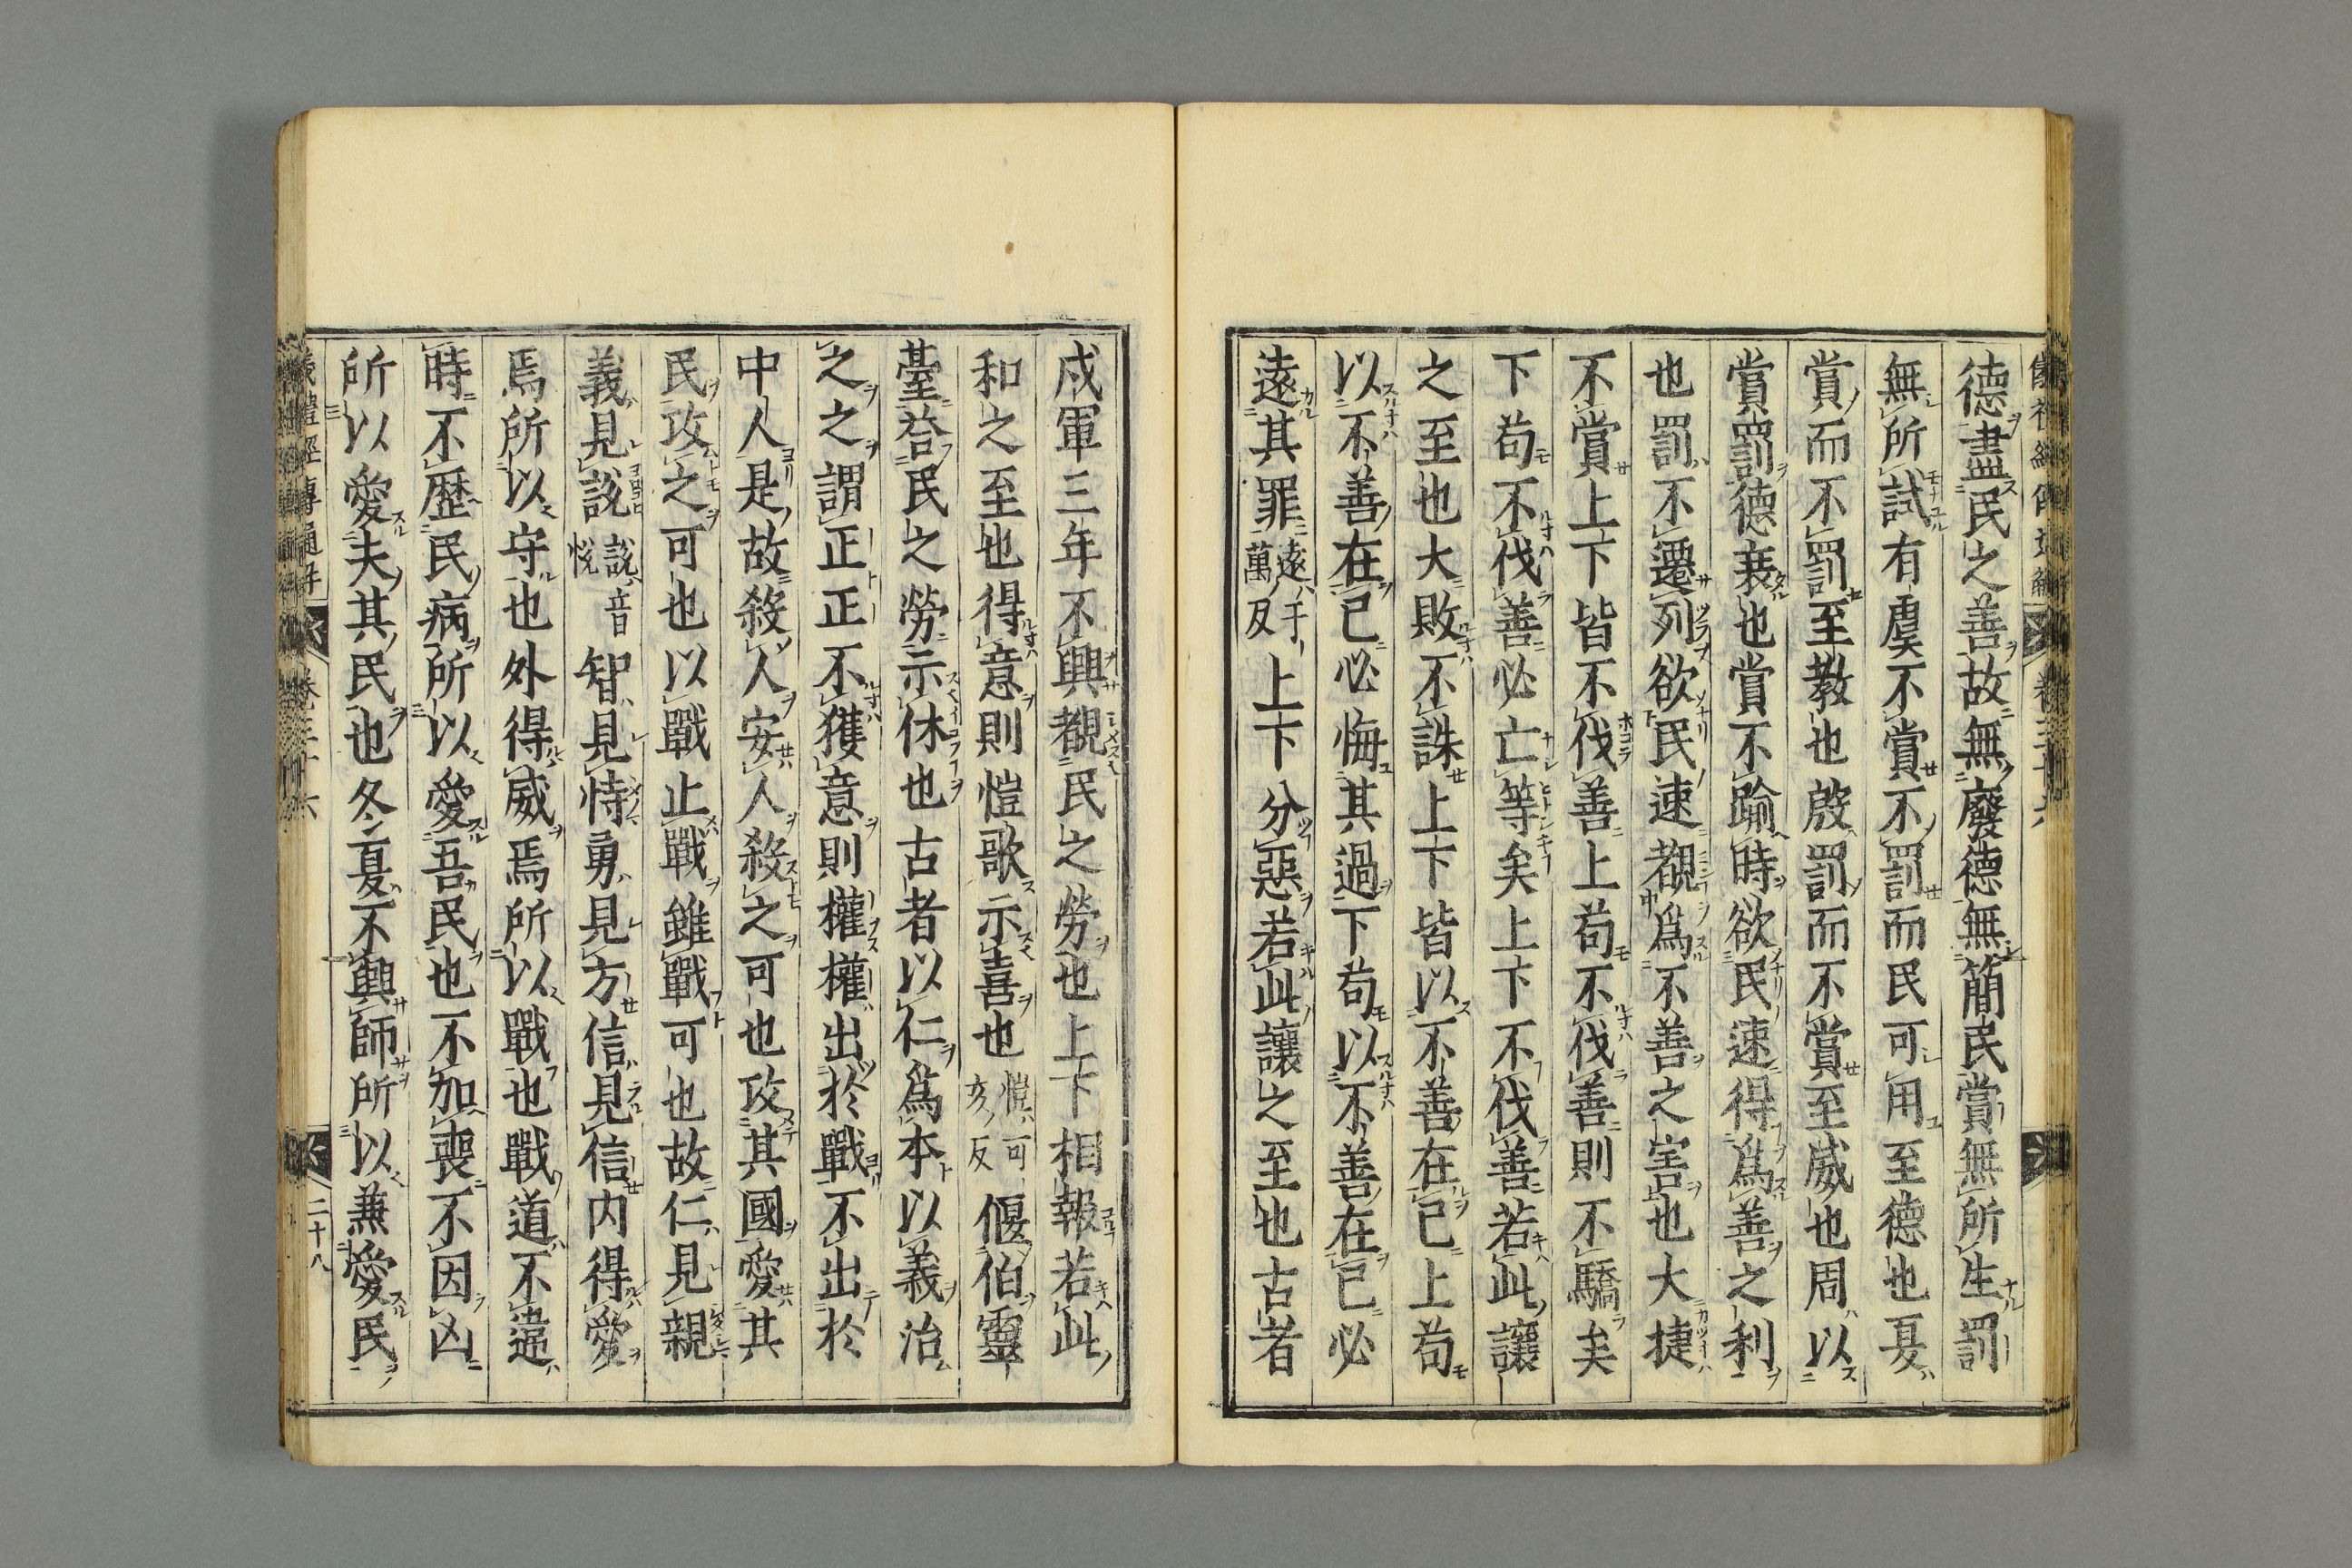 德盡民之善故無廢德無簡民賞無所生罰
無所試有虞不賞不罰而民可用至德也夏
賞而不罰至教也殷罰而不賞至威也周以
賞罰德衰也賞不踰時欲民速得爲善之利
也罰不遷列欲民速覩爲不善之害也大捷
不賞上下皆不伐善上苟不伐善則不驕矣
下苟不伐善必亡等矣上下不伐善若此讓
之至也大敗不誅上下皆以不善在己上苟
以不善在己必悔其過下苟以不善在己必
遠其罪遠千萬反上下分惡若此讓之至也古者
戍軍三年不興覩民之勞也上下相報若此
和之至也得意則愷歌示喜也愷可亥反偃伯靈
臺答民之勞示休也古者以仁爲本以義治
之之謂正正不獲意則權權出於戰不出於
中人是故殺人安人殺之可也攻其國愛其
民攻之可也以戰止戰雖戰可也故仁見親
義見説説音悦智見恃勇見方信見信内得愛
焉所以守也外得威焉所以戰也戰道不違
時不歷民病所以愛吾民也不加喪不因凶
所以愛夫其民也冬夏不興師所以兼愛民
儀禮經傳通解 卷三十六 二十八